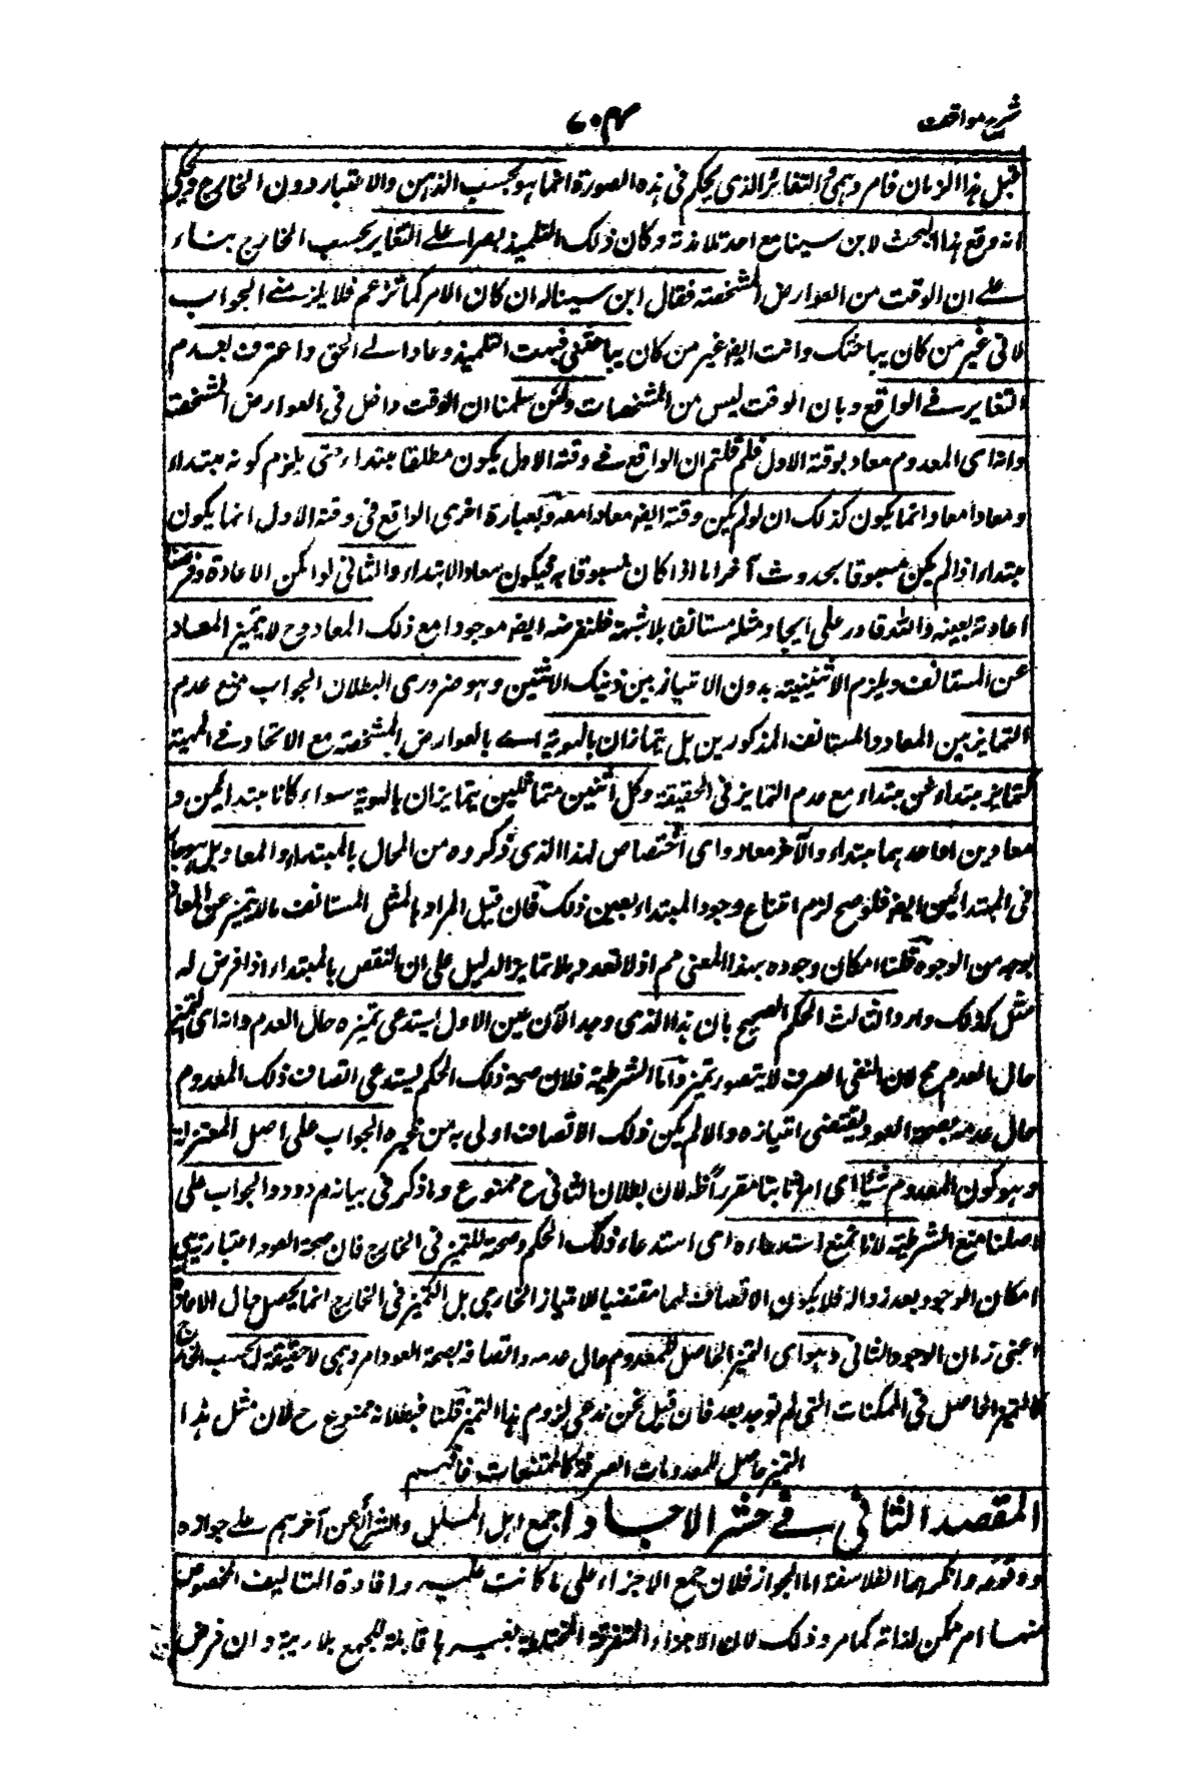 شرح مواقف
٧٠٤
قبل هذا الزمان فامر وهمى والتغاير الذى يحكم فى هذه الصورة انما هو بحسب الذهن والاعتبار دون الخارج ويحكى
انه وقع هذا البحث لابن سينا مع احد تلامذته وكان ذلك التلميذ مصرا على التغاير بحسب الخارج بناء
على ان الوقت من العوارض المشخصة فقال ابن سينا له ان كان الامر كما تزعم فلا يلزمنى الجواب
لانى غير من كان يباحثك وانت ايضه غير من كان يباحثنى فبهت التلميذ وعاد الى الحق واعترف بعدم
التغاير فى الواقع وبان الوقت ليس من المشخصات ولئن سلمنا ان الوقت داخل فى العوارض المشخصة
وانه اى المعدوم معاد بوقته الاول فلم قلتم ان الواقع فى وقته الاول يكون مطلقا مبتداء حتى يلزم كونه مبتداء
ومعادا معا وانما يكون كذلك ان لو لم يكن وقته ايضه معادا معه وبعبارة اخرى الواقع فى وقته الاول انما يكون
مبتداء اذا لم يكن مسبوقا بحدوث آخر اما اذا كان مسبوقا به فيكون معادا لا مبتداء والثانى لو امكن الاعادة وفرضنا
اعادته بعينه والله قادر على ايجاد مثله مستانفا بلا شبهة فلنفرضه ايضه موجودا مع ذلك المعاد وح لا يتميز المعاد
عن المستانف ويلزم الاثنينية بدون الامتياز بين ذينك الاثنين وهو ضرورى البطلان الجواب منع عدم
التمايز بين المعاد والمستانف المذكورين بل يتمايزان بالهوية اى بالعوارض المشخصة مع الاتحاد فى المهية
كتمايز مبتداء عن مبتداء مع عدم التمايز فى الحقيقة وكل اثنين متماثلين يتمايزان بالهوية سواء كانا مبتدائين و
معادين او احدهما مبتداء والآخر معاد واى اختصاص لهذا الذى ذكروه من المحال بالمبتداء والمعاد بل هو جار
فى المبتدائين ايضه فلو صح لزم امتناع وجود المبتداء بعين ذلك فان قيل المراد بالمثل المستانف ما لا يتميز عن المعاد
بوجه من الوجوه قلنا امكان وجوده بهذا المعنى مم اذ لا تعدد بلا تمايز الدليل على ان النقض بالمبتداء اذا فرض له
مثل كذلك وارد الثالث الحكم الصحيح بان هذا الذى وجد الآن عين الاول يستدعى تميزه حال العدم وانه اى التميز
حال العدم مح لان النفى الصرف لا يتصور تميزه واما الشرطية فلان صحة ذلك الحكم يستدعى اتصاف ذلك المعدوم
حال عدمه بصحة العود يقتضى امتيازه والا لم يكن ذلك الاتصاف اولى به من غيره الجواب على اصل المعتزلة
وهو كون المعدوم شيئا اى امرا ثابتا مقررا ظ لان بطلان الثانى ح ممنوع وما ذكر فى بيانه مردود والجواب على
اصلنا منع الشرطية لانا نمنع استدعاءه اى استدعاء ذلك الحكم وصحته للتميز فى الخارج فان صحة العود اعتبارية هى
امكان الوجود بعد زواله فلا يكون الاتصاف لها مقتضيا للامتياز الخارجى بل التميز فى الخارج انما يحصل حال الاعادة
اعنى زمان الوجود الثانى وهو اى التميز الحاصل للمعدوم حال عدمه واتصافه بصحة العود امر وهمى لا حقيقة له بحسب الخارج
كالتميز الحاصل فى الممكنات التى لم توجد بعد فان قيل نحن ندعى لزوم هذا التميز قلنا فبطلانه ممنوع ح لان مثل هذا
التميز حاصل للمعدومات الصرفة كالممتنعات فافهم
المقصد الثانى فى حشر الاجساد اجمع اهل الملل والشرائع عن آخرهم على جوازه
ووقوعه وانكرهما الفلاسفة اما الجواز فلان جمع الاجزاء على ما كانت عليه واعادة التاليف المخصوص
فيها امر ممكن لذاته كما مر وذلك لان الاجزاء المتفرقة المختلطة بغيرها قابلة للجمع بلا ريبة وان فرض